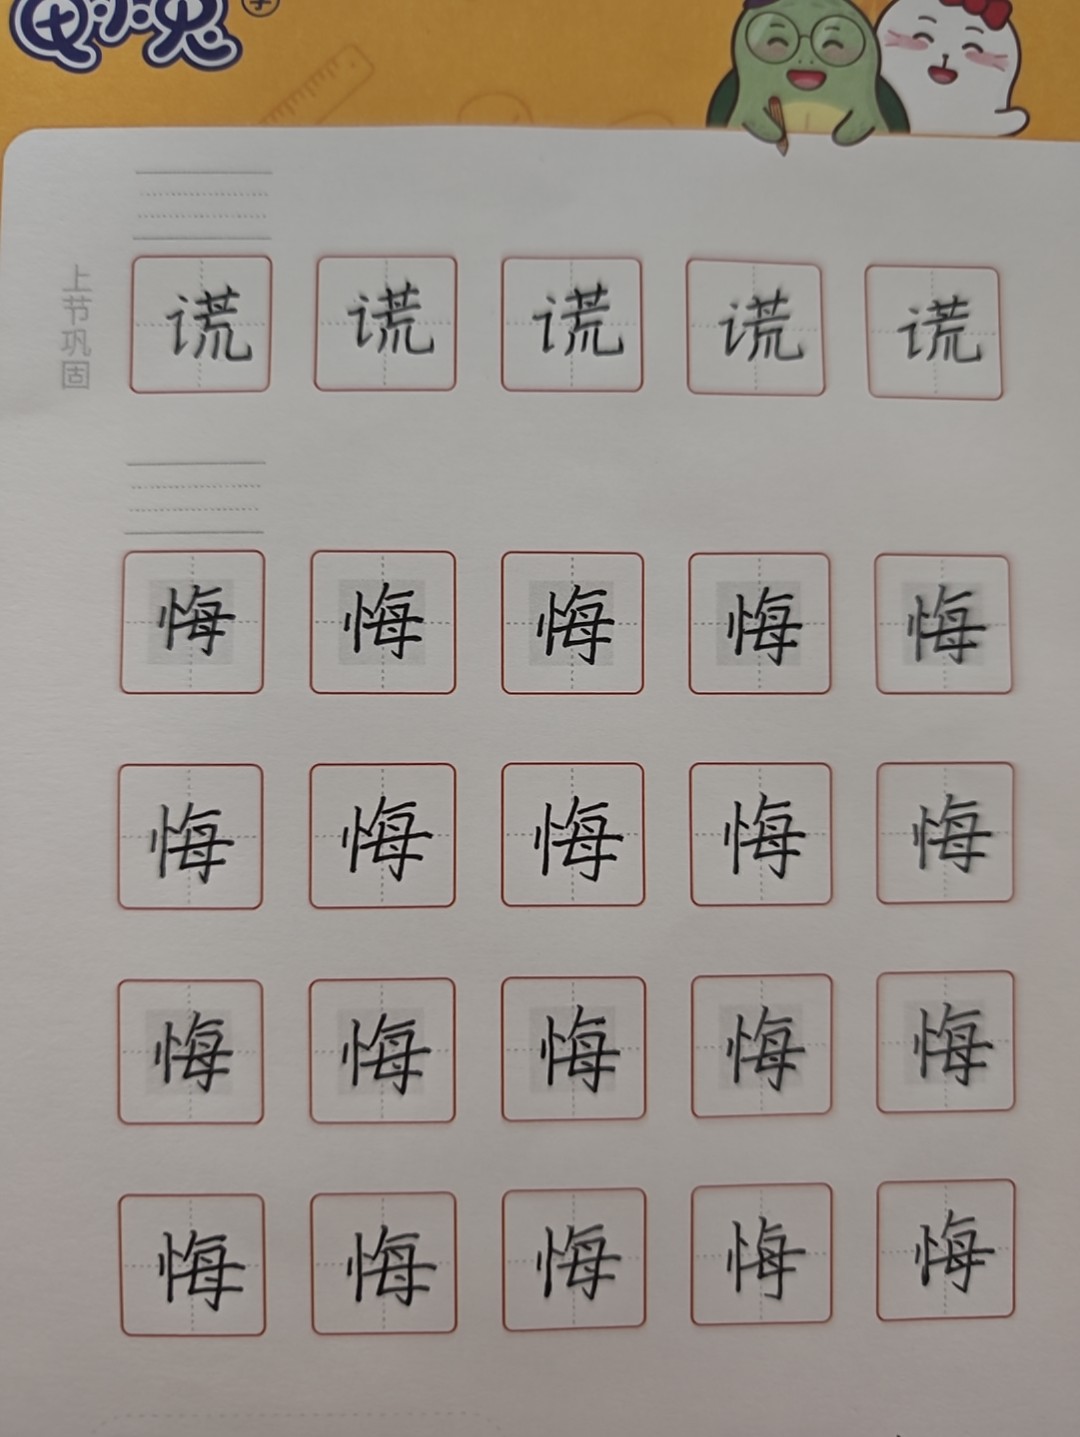 上节巩固
谎 谎 谎 谎 谎
悔 悔 悔 悔 悔
悔 悔 悔 悔 悔
悔 悔 悔 悔 悔
悔 悔 悔 悔 悔